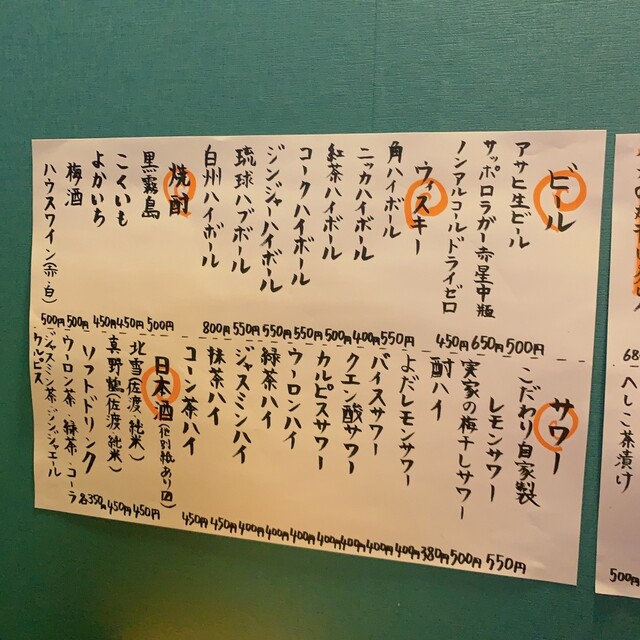 ビール
アサヒ生ビール 500円
サッポロラガー赤星中瓶 650円
ノンアルコールドライゼロ 450円
ウィスキー
角ハイボール 550円
ニッカハイボール 400円
紅茶ハイボール 500円
コークハイボール 550円
ジンジャーハイボール 550円
琉球ハブボール 550円
白州ハイボール 800円
焼酎
黒霧島 500円
こくいも 450円
よかいち 450円
梅酒 500円
ハウスワイン(赤・白) 500円
サワー
こだわり自家製
レモンサワー 550円
実家の梅干しサワー 500円
酎ハイ 380円
よだレモンサワー 400円
バイスサワー 400円
クエン酸サワー 400円
カルピスサワー 400円
ウーロンハイ 400円
緑茶ハイ 400円
ジャスミンハイ 400円
抹茶ハイ 450円
コーン茶ハイ 450円
日本酒(別紙あり〼)
北雪(佐渡 純米) 450円
真野鶴(佐渡 純米) 450円
ソフトドリンク 各350円
ウーロン茶・緑茶・コーラ
ジャスミン茶・ジンジャエール
カルピス
へしこ茶漬け
500円